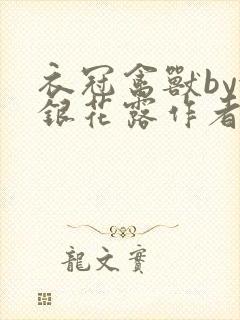 衣冠禽獸by
銀花露作者
龍文實